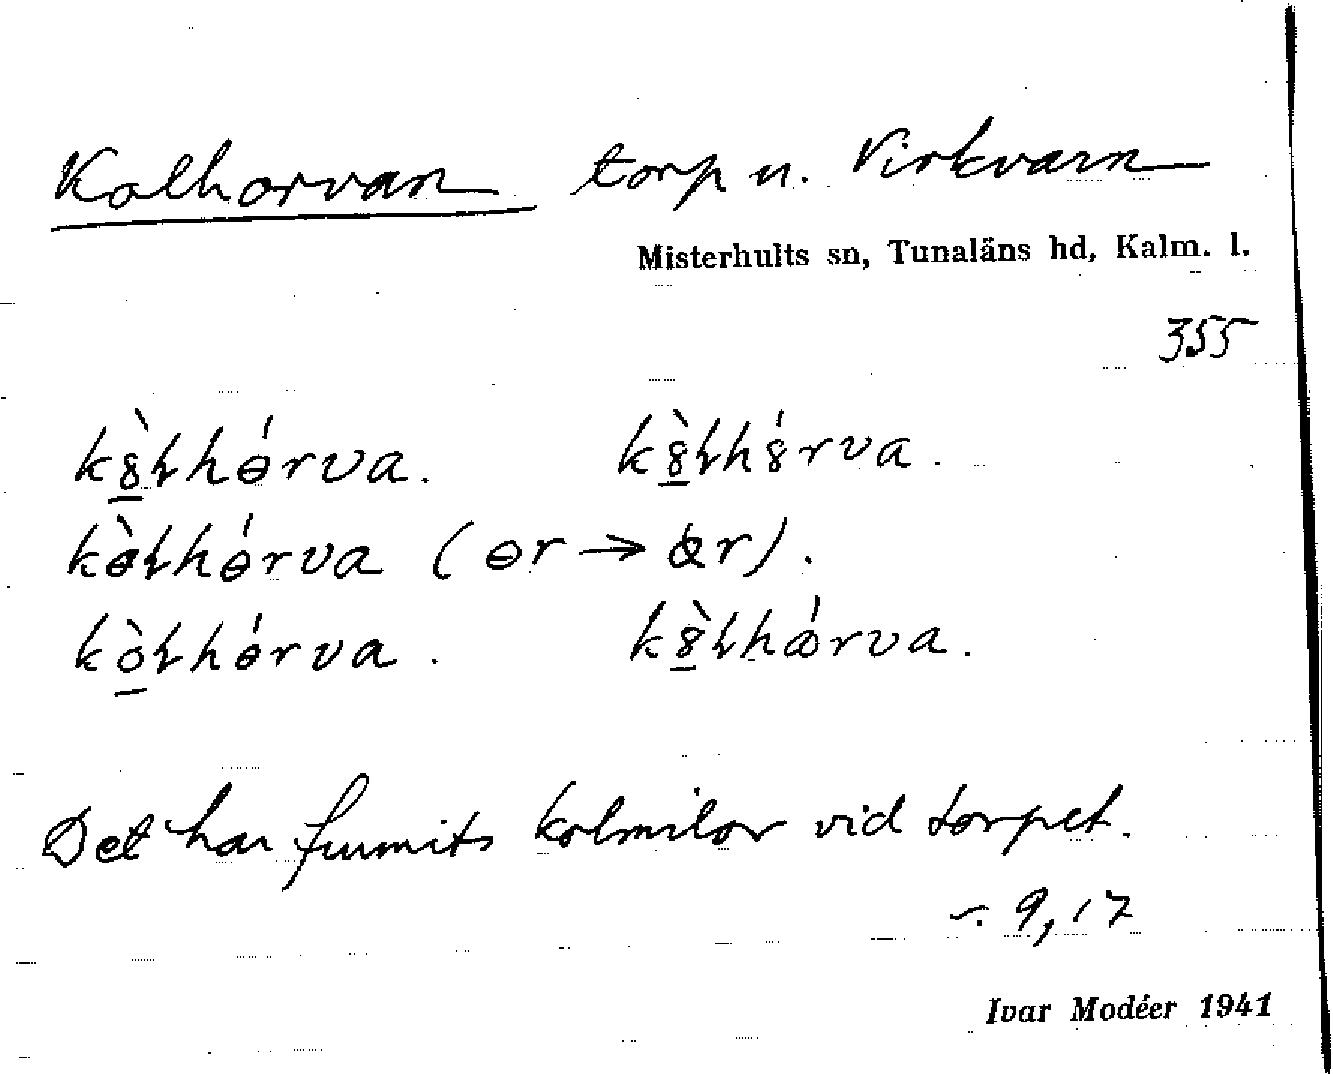 Kolhorvan torp u. Virkvarn
Misterhults sn, Tunaläns hd, Kalm. l.
355
k8̲̀ɫhɵ́rva. k8̲̀ɫh8́rva.
kɵ̀ɫhɵ́rva (ɵr → ꝍr).
kò̲ɫhɵ́rva. k8̲̀ɫhǿrva.
Det har funnits kolmilor vid torpet.
∽. 9, 17
Ivar Modéer 1941